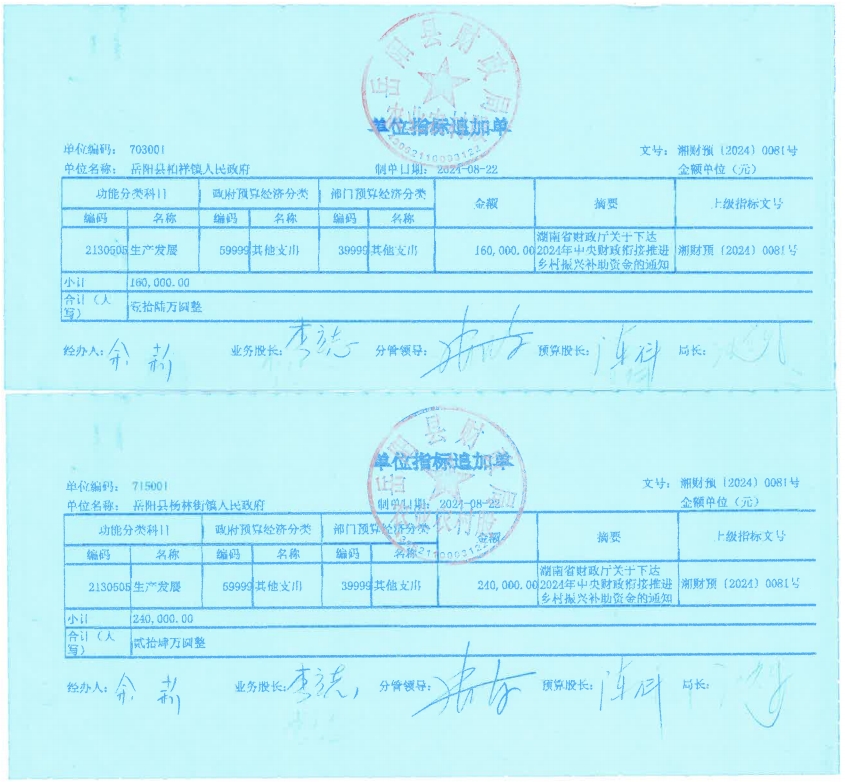 岳阳县财政局
农业农村股
单位指标追加单
单位编码: 703001 文号: 湘财预〔2024〕0081号
单位名称: 岳阳县柏祥镇人民政府 制单日期: 2024-08-22 金额单位(元)
功能分类科目 政府预算经济分类 部门预算经济分类 金额 摘要 上级指标文号
编码 名称 编码 名称 编码 名称
2130505 生产发展 59999 其他支出 39999 其他支出 160,000.00 湖南省财政厅关于下达
2024年中央财政衔接推进 湘财预〔2024〕0081号
乡村振兴补助资金的通知
小计 160,000.00
合计(大
写) 壹拾陆万圆整
经办人: 业务股长: 分管领导: 预算股长: 局长:
岳阳县财政局
农业农村股
单位指标追加单
单位编码: 715001 文号: 湘财预〔2024〕0081号
单位名称: 岳阳县杨林街镇人民政府 制单日期: 2024-08-22 金额单位(元)
功能分类科目 政府预算经济分类 部门预算经济分类 金额 摘要 上级指标文号
编码 名称 编码 名称 编码 名称
2130505 生产发展 59999 其他支出 39999 其他支出 240,000.00 湖南省财政厅关于下达
2024年中央财政衔接推进 湘财预〔2024〕0081号
乡村振兴补助资金的通知
小计 240,000.00
合计(大
写) 贰拾肆万圆整
经办人: 业务股长: 分管领导: 预算股长: 局长: